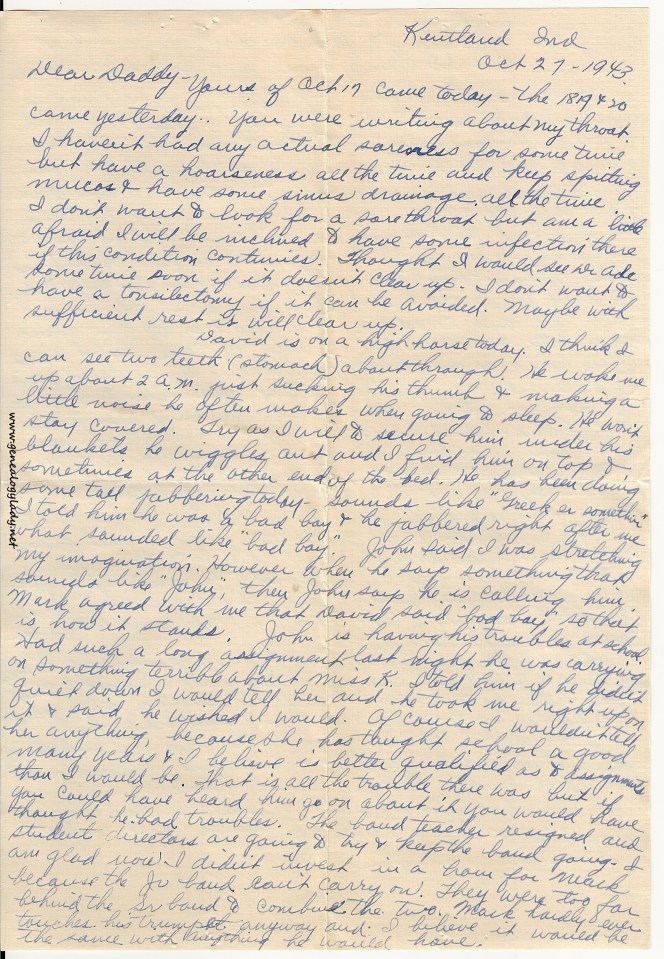 Kentland Ind
Oct 27-1943.
Dear Daddy - Yours of Oct 17 came today - The 18 19 & 20
came yesterday.. You were writing about my throat.
I haven't had any actual soreness for some time
but have a hoarseness all the time and keep spitting
mucos & have some sinus drainage all the time
I don't want to look for a sorethroat but am a little
afraid I will be inclined to have some infection there
if this condition continues. Thought I would see Dr Ade
sometime soon if it doesn't clear up. I don't want to
have a tonsilectomy if it can be avoided. Maybe with
sufficient rest it will clear up.
David is on a high horse today. I think I
can see two teeth (stomach) about through! He woke me
up about 2 a.m. just sucking his thumb & making a
little noise he often makes when going to sleep. He won't
stay covered. Try as I will to secure him under his
blankets he wiggles out and I find him on top &
sometimes at the other end of the bed. He has been doing
some tall jabbering today - sounds like "Greek er somethin"
I told him he was a bad boy & he jabbered right after me
what sounded like "bad boy." John said I was stretching
my imagination. However when he says something that
sounds like "John", then John says he is calling him.
Mark agreed with me that David said "bad boy" so that
is how it stands. John is having his troubles at school.
Had such a long assignment last night he was carrying
on something terrible about Miss K. I told him if he didn't
quiet down I would tell her and he took me right up on
it & said he wished I would. Of course I wouldn't tell
her anything, because she has taught school a good
many years & I believe is better qualified as to assignments
than I would be. That is all the trouble there was but if
you could have heard him go on about it you would have
thought he had troubles. The band teacher resigned and
student directors are going to try & keep the band going. I
am glad now I didn't invest in a horn for Mark
because the Jr band can't carry on. They were too far
behind the Sr band to combine the two. Mark hardly ever
touches his trumpet anyway and I believe it would be
the same with anything he would have.
www.genealogybug.net